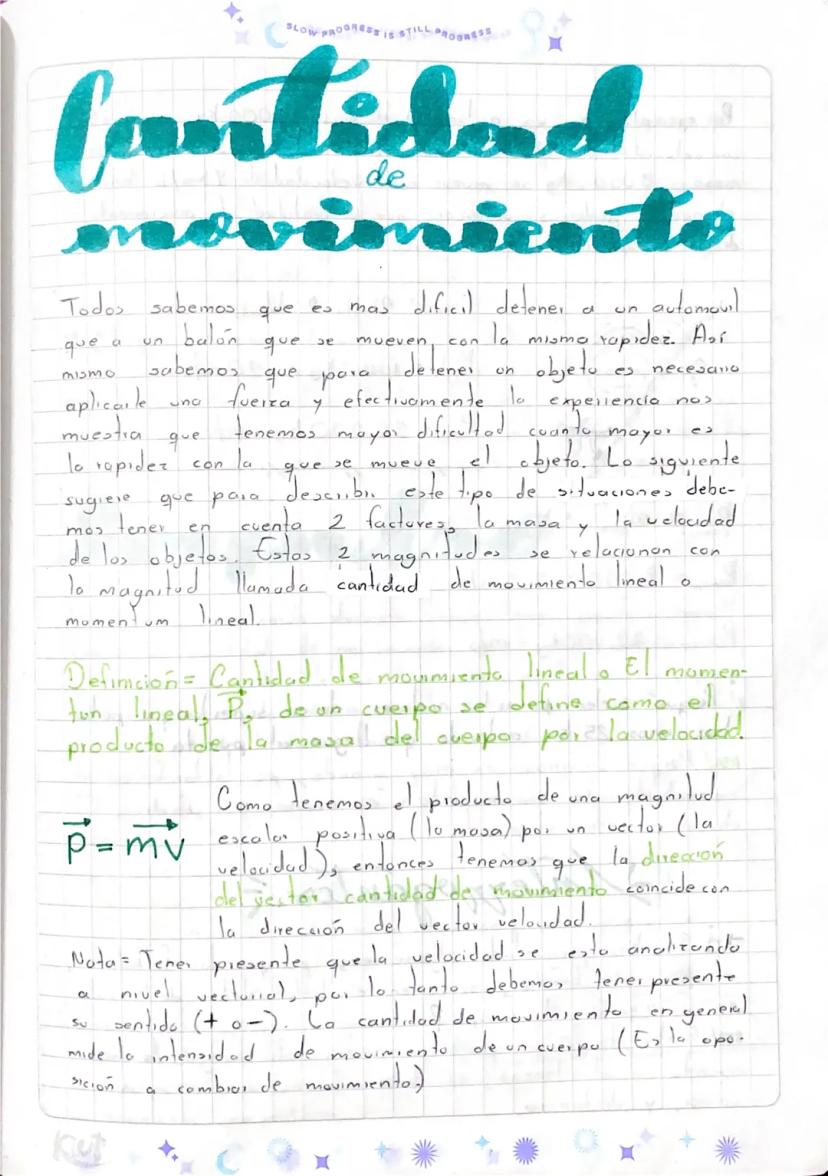 SLOW PROGRESS IS STILL PROGRESS
Cantidad
de
movimiento
Todos sabemos que es mas dificil detener a un automovil
que a un balón que se mueven, con la misma rapidez. Así
mismo sabemos que para detener un objeto es necesario
aplicarle una fuerza y efectivamente la experiencia nos
muestra que tenemos mayor dificultad cuanto mayor es
la rapidez con la que se mueve el objeto. Lo siguiente
sugiere que para describir este tipo de situaciones debe-
mos tener en cuenta 2 factores, la masa y la velocidad
de los objetos. Estas 2 magnitudes se relacionan con
la magnitud llamada cantidad de movimiento lineal o
momentum lineal.
Definición = Cantidad de movimiento lineal o El momen-
tun lineal, P⃗, de un cuerpo se define como el
producto de la masa del cuerpo por la velocidad.
P⃗ = m⃗v⃗
Como tenemos el producto de una magnitud
escalar positiva (la masa) por un vector (la
velocidad), entonces tenemos que la dirección
del vector cantidad de movimiento coincide con
la dirección del vector velocidad.
Nota = Tener presente que la velocidad se esta analizando
a nivel vectorial, por lo tanto debemos tener presente
su sentido (+ o -). La cantidad de movimiento en general
mide la intensidad de movimiento de un cuerpo (Es la opo-
sición a cambios de movimiento)